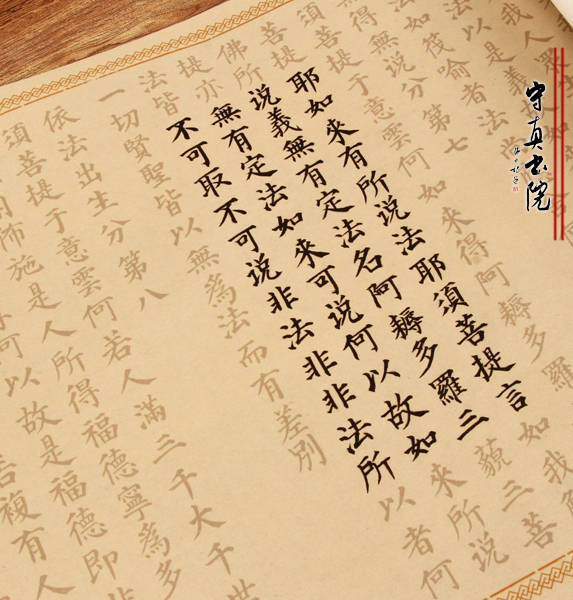 我人
以是義
法如筏喻者法
無得無说分第七
須菩提于意雲何如來得阿耨多羅
菩提耶如來有所说法耶須菩提言如我
佛所说義無有定法名阿耨多羅三藐三菩
提亦無有定法如來可说何以故如來所说
法皆不可取不可说非法非非法所以者何
一切賢聖皆以無為法而有差別
依法出生分第八
須菩提于意雲何若人滿三千大千世
布施是人所得福德寧為多
可以故是福德即
若複有人
守真書院